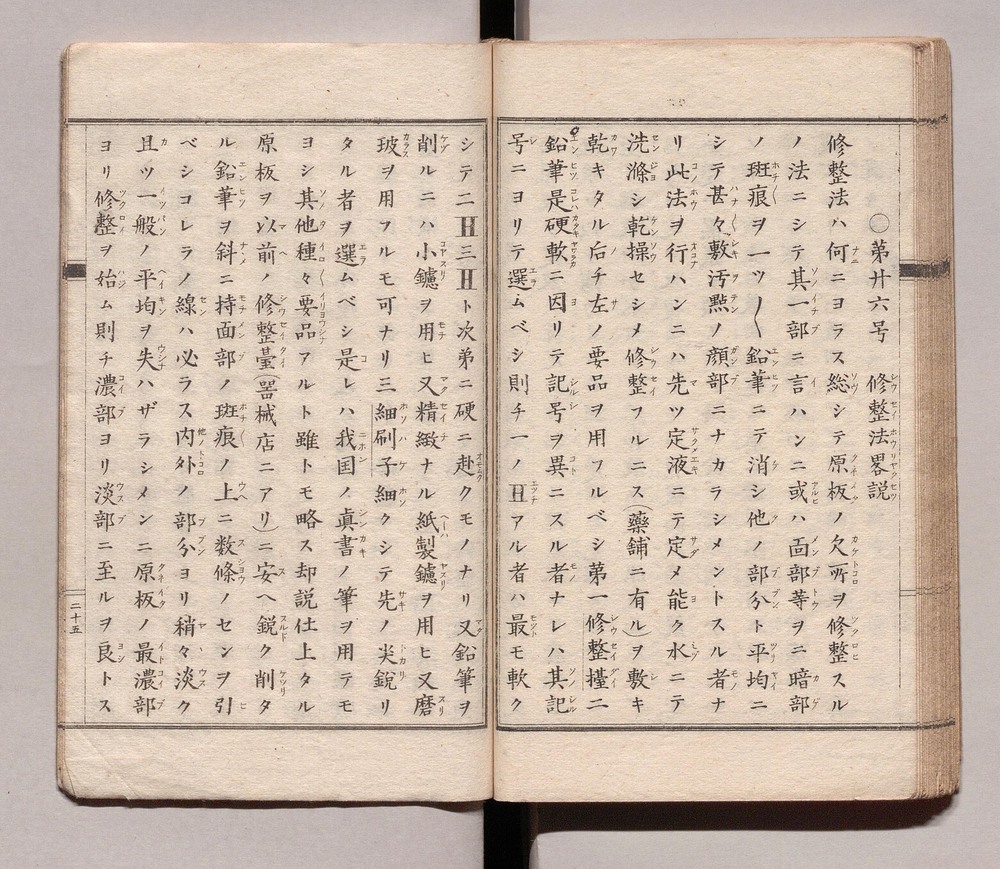 〇第廿六号　修整法畧説
修整法ハ何ニヨラス総シテ原板ノ欠所ヲ修整スル
ノ法ニシテ其一部ニ言ハンニ或ハ面部等ヲニ暗部
ノ斑痕ヲ一ツ〱鉛筆ニテ消シ他ノ部分ト平均ニ
シテ甚々敷汚㸃ノ顔部ニナカラシメントスル者ナ
リ此法ヲ行ハンニハ先ツ定液ニテ定メ能ク水ニテ
洗滌シ乾操セシメ修整フルニス(藥舗ニ有ル)ヲ敷キ
乾キタル后チ左ノ要品ヲ用フルベシ第一修整㯳ニ
鉛筆是硬軟ニ因リテ記号ヲ異ニスル者ナレハ其記
号ニヨリテ選ムベシ則チ一ノHアル者ハ最モ軟ク
シテ二H三Hト次第ニ硬ニ赴クモノナリ又鉛筆ヲ
削ルニハ小鑢ヲ用ヒ又精緻ナル紙製鑢ヲ用ヒ又磨
玻ヲ用フルモ可ナリ三細刷子細クシテ先ノ尖鋭リ
タル者ヲ選ムベシ是レハ我国ノ眞書ノ筆ヲ用テモ
ヨシ其他種々要品アルト雖トモ略ス却説仕上タル
原板ヲ以前ノ修整臺(噐械店ニアリ)ニ安ヘ鋭ク削タ
ル鉛筆ヲ斜ニ持面部ノ斑痕ノ上ニ数條ノセンヲ引
ベシコレラノ線ハ必ラス内外ノ部分ヨリ稍々淡ク
且ツ一般ノ平均ヲ失ハザラシメンニ原板ノ最濃部
ヨリ修整ヲ始ム則チ濃部ヨリ淡部ニ至ルヲ良トス
二十五